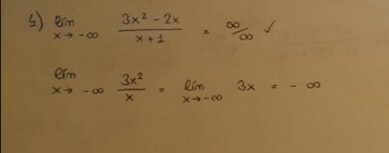 5) lím x→ -∞ 3x² - 2x / x + 1 = ∞/∞ ✓
lím x→ -∞ 3x² / x = lím x→ -∞ 3x = - ∞